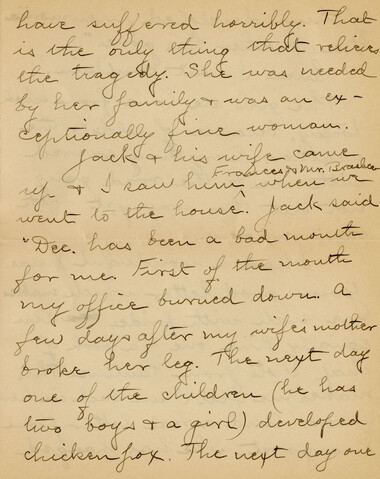 have suffered horribly. That
is the only thing that relieves
the tragedy. She was needed
by her family & was an ex-
ceptionally fine woman.
Jack & his wife came
Frances & Mr. Brasher
up & I saw him ^ when we
went to the house. Jack said
"Dec. has been a bad month
for me. First of the month
my office burned down. A
few days after my wife's mother
broke her leg. The next day
one of the children (he has
two boys & a girl) developed
chicken pox. The next day one